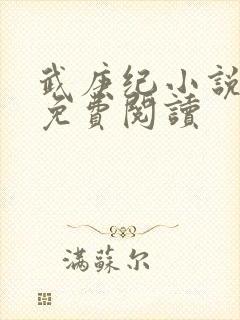 武庚纪小說
免費閱讀
滿蘇尔